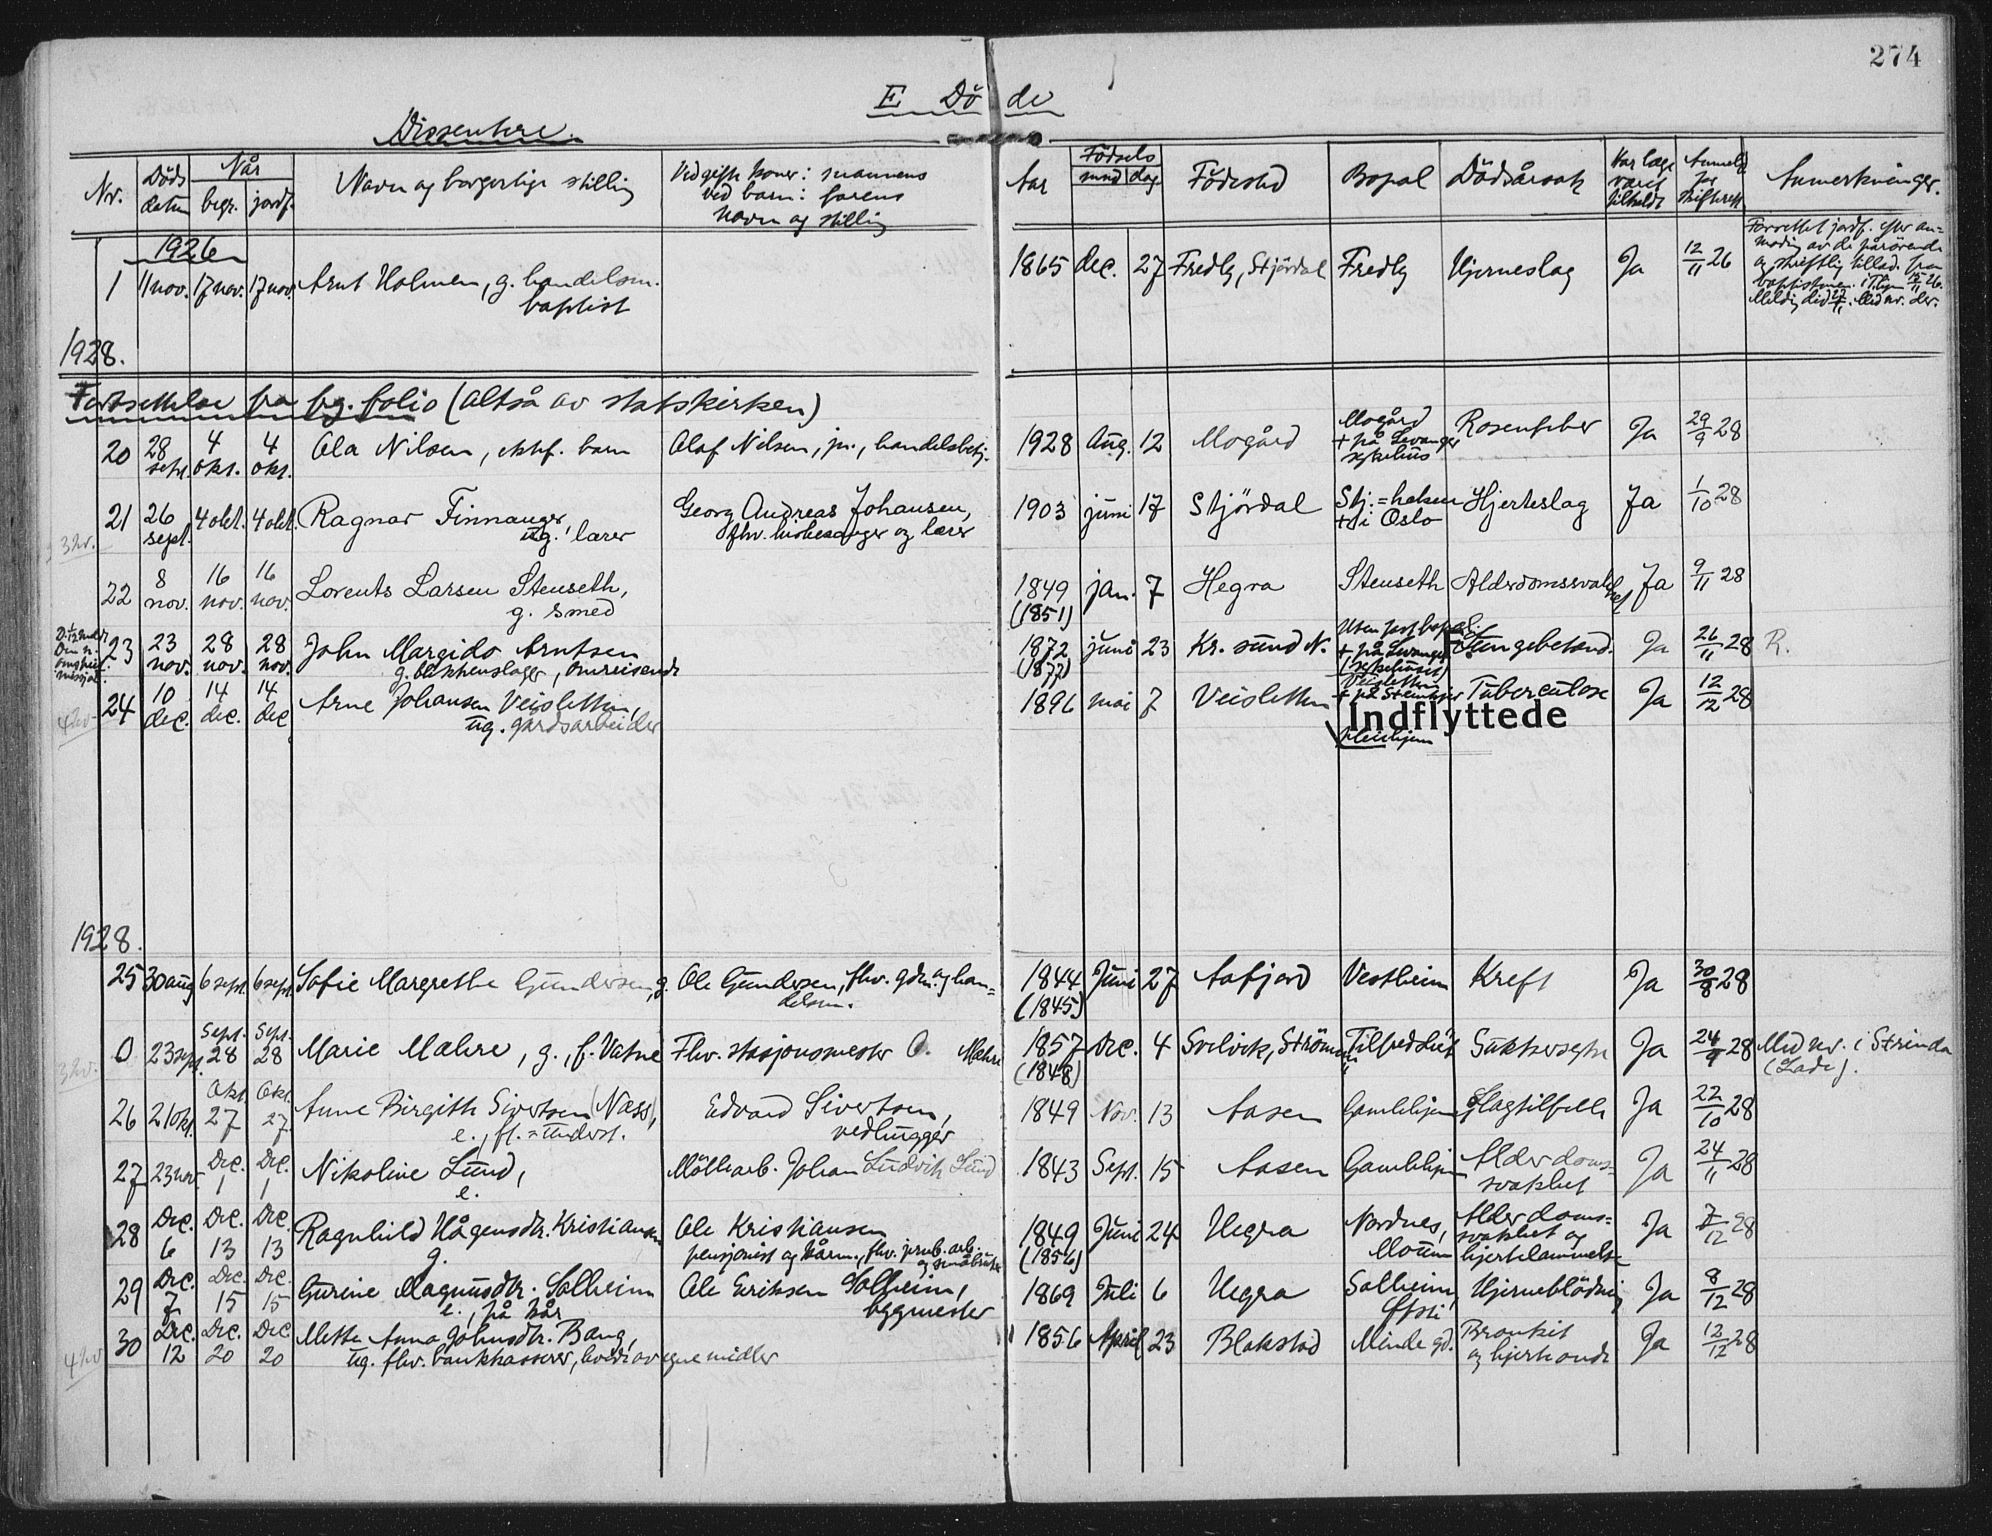 274
E Döde
Dissentere.
Nr. Döds datum Når begr. jordf. Navn og borgerlige stilling Ved gifte koner: mannens ved barn: farens navn og stilling Aar Födsels mnd dag Födested Bopæl Dödsårsak Har læge været tilkaldt Anmeldt for skifteret Anmerkninger.
1926
1 11 nov. 17 nov. 17 nov. Arnt Holmen, g. handelsm. baptist 1865 dec. 27 Fredly, Stjördal Fredly Hjerneslag Ja 12/11 26
Forrettet jordf. efter an=
modig av de pårörende
og skriftlig tillad. fra
baptistmen. i T.hjem 15/11 26.
1928.
Fortsettelse fra fvg. folio (altså av statskirken)
20 28 sept. 4 okt. 4 okt. Ola Nilsen, ektef. barn Olaf Nilsen, jr., handelsbetj. 1928 Aug. 12 Mogård Mogård + på Levanger sykehus Rosenfeber Ja 29/9 28
21 26 sept. 4 okt. 4 okt. Ragnar Finnanger, ug. lærer Georg Andreas Johansen, fhv. kirkesanger og lærer 1903 juni 17 Stjördal Stj.=halsen + i Oslo Hjerteslag Ja 1/10 28
3 hv.
22 8 nov. 16 nov. 16 nov. Lorents Larsen Stenseth, g. smed 1849 (1851) jan. 7 Hegra Stenseth Alderdomssvakhet Ja 9/11 28
23 23 nov. 28 nov. 28 nov. John Margido Arntsen g. blikkenslager, omreisende 1872 (1877) juni 23 Kr. sund N. Uten fast bopæl. + på Levanger (sykehuset) Lungebetænd. Ja 26/11 28 R.
24 10 dec. 14 dec. 14 dec. Arne Johansen Veisletten, ug. gårdsarbeider 1896 mai 7 Veisletten Veisletten + på Steinkjer pleiehjem Tuberculose Ja 12/12 28
4 hv
F. Indflyttede
1928.
25 30 aug 6 sept. 6 sept. Sofie Margrethe Gundersen, g. Ole Gundersen, fhv. gdm. og han=delsm. 1844 (1845) Juni 27 Aafjord Vestheim Kreft Ja 30/8 28
0 23 sept. Sept. 28 Sept. 28 Marie Mæhre, g., f. Vatne Fhv. stasjonsmester O. Mæhre 1857 (1848) Dec. 4 Svelvik, Ström Tilfredshet Sukkersyke Ja 24/9 28 Med nr. i Strinda (Lade).
3 hv.
26 21 okt. Okt. 27 Okt. 27. Anne Birgith Sivertsen (Næss), e., fl.=underst. Edvard Sivertsen, vedhugger 1849 Nov. 13 Aasen Gamlehjem Slagtilfelle Ja 22/10 28
27 23 nov. Dec. 1 Dec. 1 Nikoline Lund, e. Möllearb. Johan Ludvik Lund 1843 Sept. 15 Aasen Gamlehjem Alderdoms=svakhet Ja 24/11 28
28 Dec. 6 Dec. 13 Dec. 13 Ragnhild Hågensdtr. Kristiansen g. Ole Kristiansen pensjonist og kårm., fhv. jernb.arb. og småbruker 1849 (1856) Juni 24 Hegra Nordnes, Moum Alderdoms=svakhet og hjertelammelse Ja 7/12 28
29 Dec. 7 Dec. 15 Dec. 15 Gurine Magnusdtr. Solheim e., på kår Ole Eriksen Solheim, byggmester 1869 Juli 6 Hegra Solheim, Öfsti Hjerneblödning Ja 8/12 28
30 Dec. 12 Dec. 20 Dec. 20 Mette Anna Johnsdtr. Bang, ug. fhv. bankkasserer, levde av egne midler 1856 April 23 Blakstad Minde gd. Bronkit og hjerteonde Ja 12/12 28
4 hv